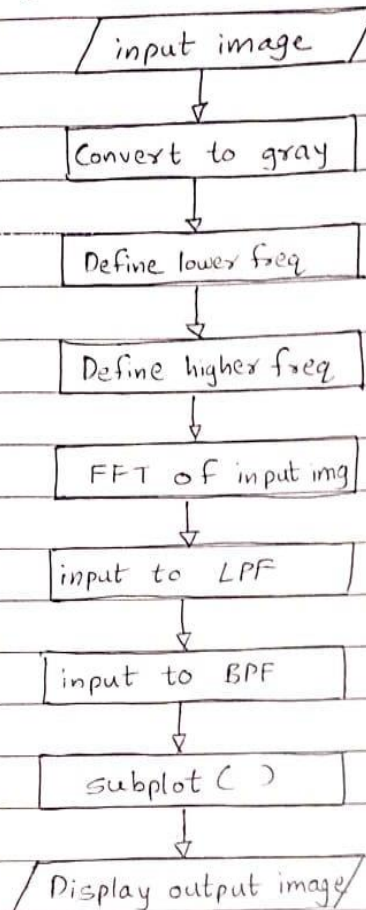 input image
Convert to gray
Define lower freq
Define higher freq
FFT of input img
input to LPF
input to BPF
subplot ( )
Display output image